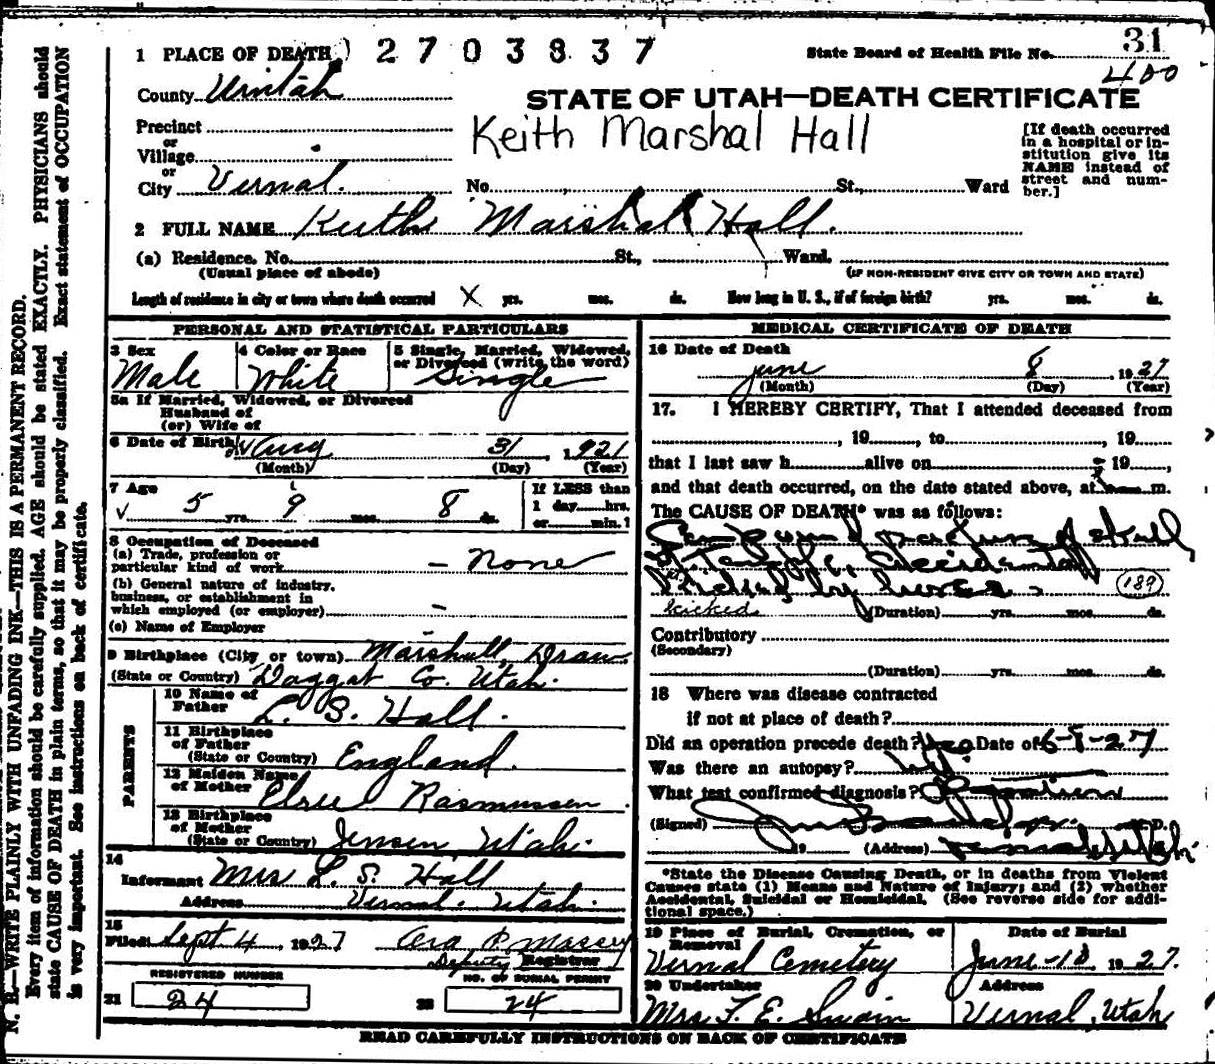 1 PLACE OF DEATH) 2 7 0 3 8 3 7
State Board of Health File No. 31
400
County Uintah
STATE OF UTAH—DEATH CERTIFICATE
Precinct
or
Village
or
City Vernal. No. St., Ward
Keith Marshal Hall
[If death occurred
in a hospital or in-
stitution give its
NAME instead of
street and num-
ber.]
2 FULL NAME Keith Marshal Hall.
(a) Residence. No. St., Ward.
(Usual place of abode) (IF NON-RESIDENT GIVE CITY OR TOWN AND STATE)
Length of residence in city or town where death occurred X yrs. mos. ds. How long in U. S., if of foreign birth? yrs. mos. ds.
PERSONAL AND STATISTICAL PARTICULARS
3 Sex
Male
4 Color or Race
White
5 Single, Married, Widowed,
or Divorced (write the word)
Single
5a If Married, Widowed, or Divorced
Husband of
(or) Wife of
6 Date of Birth Aug 31, 1921
(Month) (Day) (Year)
7 Age
5 yrs. 9 mos. 8 ds.
If LESS than
1 day hrs.
or min.?
8 Occupation of Deceased
(a) Trade, profession or
particular kind of work – None
(b) General nature of industry,
business, or establishment in
which employed (or employer) –
(c) Name of Employer
9 Birthplace (City or town) Marshall, Draw.
(State or Country) Daggat Co. Utah.
PARENTS
10 Name of
Father L. S. Hall.
11 Birthplace
of Father
(State or Country) England.
12 Maiden Name
of Mother Elsie Rasmussen
13 Birthplace
of Mother
(State or Country) Jensen Utah.
14
Informant Mrs L. S. Hall
Address Vernal. Utah.
15
Filed Sept 4, 1927 Cera P. Massey
Deputy Registrar
REGISTERED NUMBER NO. OF BURIAL PERMIT
21 24 22 24
MEDICAL CERTIFICATE OF DEATH
16 Date of Death
June 8, 1927
(Month) (Day) (Year)
17. I HEREBY CERTIFY, That I attended deceased from
, 19 , to , 19
that I last saw h alive on 19 ,
and that death occurred, on the date stated above, at m.
The CAUSE OF DEATH* was as follows:
Compound fracture of skull
Accidental
Kicked by horse.
189
kicked (Duration) yrs. mos. ds.
Contributory
(Secondary)
(Duration) yrs. mos. ds.
18 Where was disease contracted
if not at place of death?
Did an operation precede death? Yes Date of 6-8-27
Was there an autopsy? No.
What test confirmed diagnosis? Operation
(Signed) M.D.
, 19 (Address) Vernal Utah.
*State the Disease Causing Death, or in deaths from Violent
Causes state (1) Means and Nature of Injury; and (2) whether
Accidental, Suicidal or Homicidal. (See reverse side for addi-
tional space.)
19 Place of Burial, Cremation, or
Removal
Vernal Cemetery
Date of Burial
June-10 1927.
20 Undertaker
Mrs F. E. Swain
Address
Vernal, Utah
READ CAREFULLY INSTRUCTIONS ON BACK OF CERTIFICATE
N. B.—WRITE PLAINLY WITH UNFADING INK—THIS IS A PERMANENT RECORD.
Every item of information should be carefully supplied. AGE should be stated EXACTLY. PHYSICIANS should
state CAUSE OF DEATH in plain terms, so that it may be properly classified. Exact statement of OCCUPATION
is very important. See instructions on back of certificate.